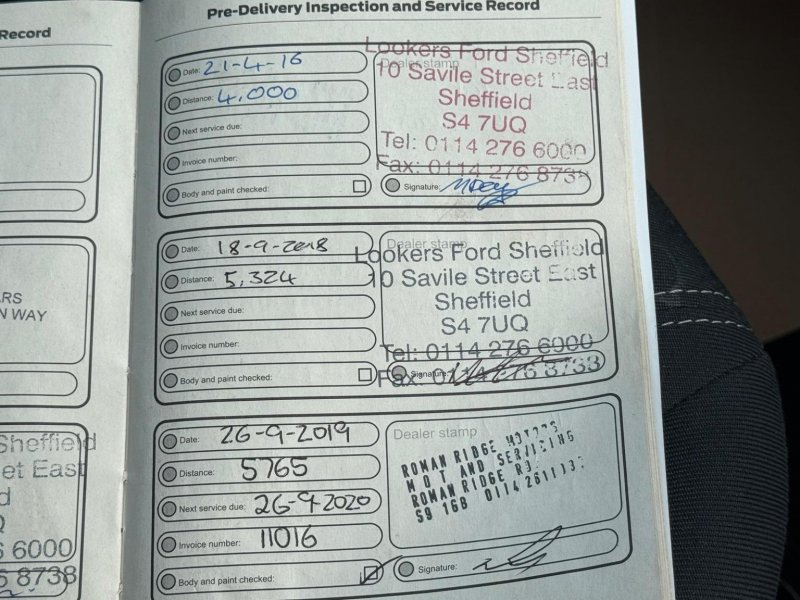 Record
RS
N WAY
Sheffield
et East
d
6000
8738
Pre-Delivery Inspection and Service Record
Date: 21-4-16
Distance: 4,000
Next service due:
Invoice number:
Body and paint checked:
Dealer stamp
Lookers Ford Sheffield
10 Savile Street East
Sheffield
S4 7UQ
Tel: 0114 276 6000
Fax: 0114 276 873
Signature:
Date: 18-9-2018
Distance: 5,324
Next service due:
Invoice number:
Body and paint checked:
Dealer stamp
Lookers Ford Sheffield
10 Savile Street East
Sheffield
S4 7UQ
Tel: 0114 276 6000
Fax: 0114 276 8738
Signature:
Date: 26-9-2019
Distance: 5765
Next service due: 26-9-2020
Invoice number: 11016
Body and paint checked:
Dealer stamp
ROMAN RIDGE MOTORS
MOT AND SERVICING
ROMAN RIDGE RD.
S9 1GB 0114 261
Signature: